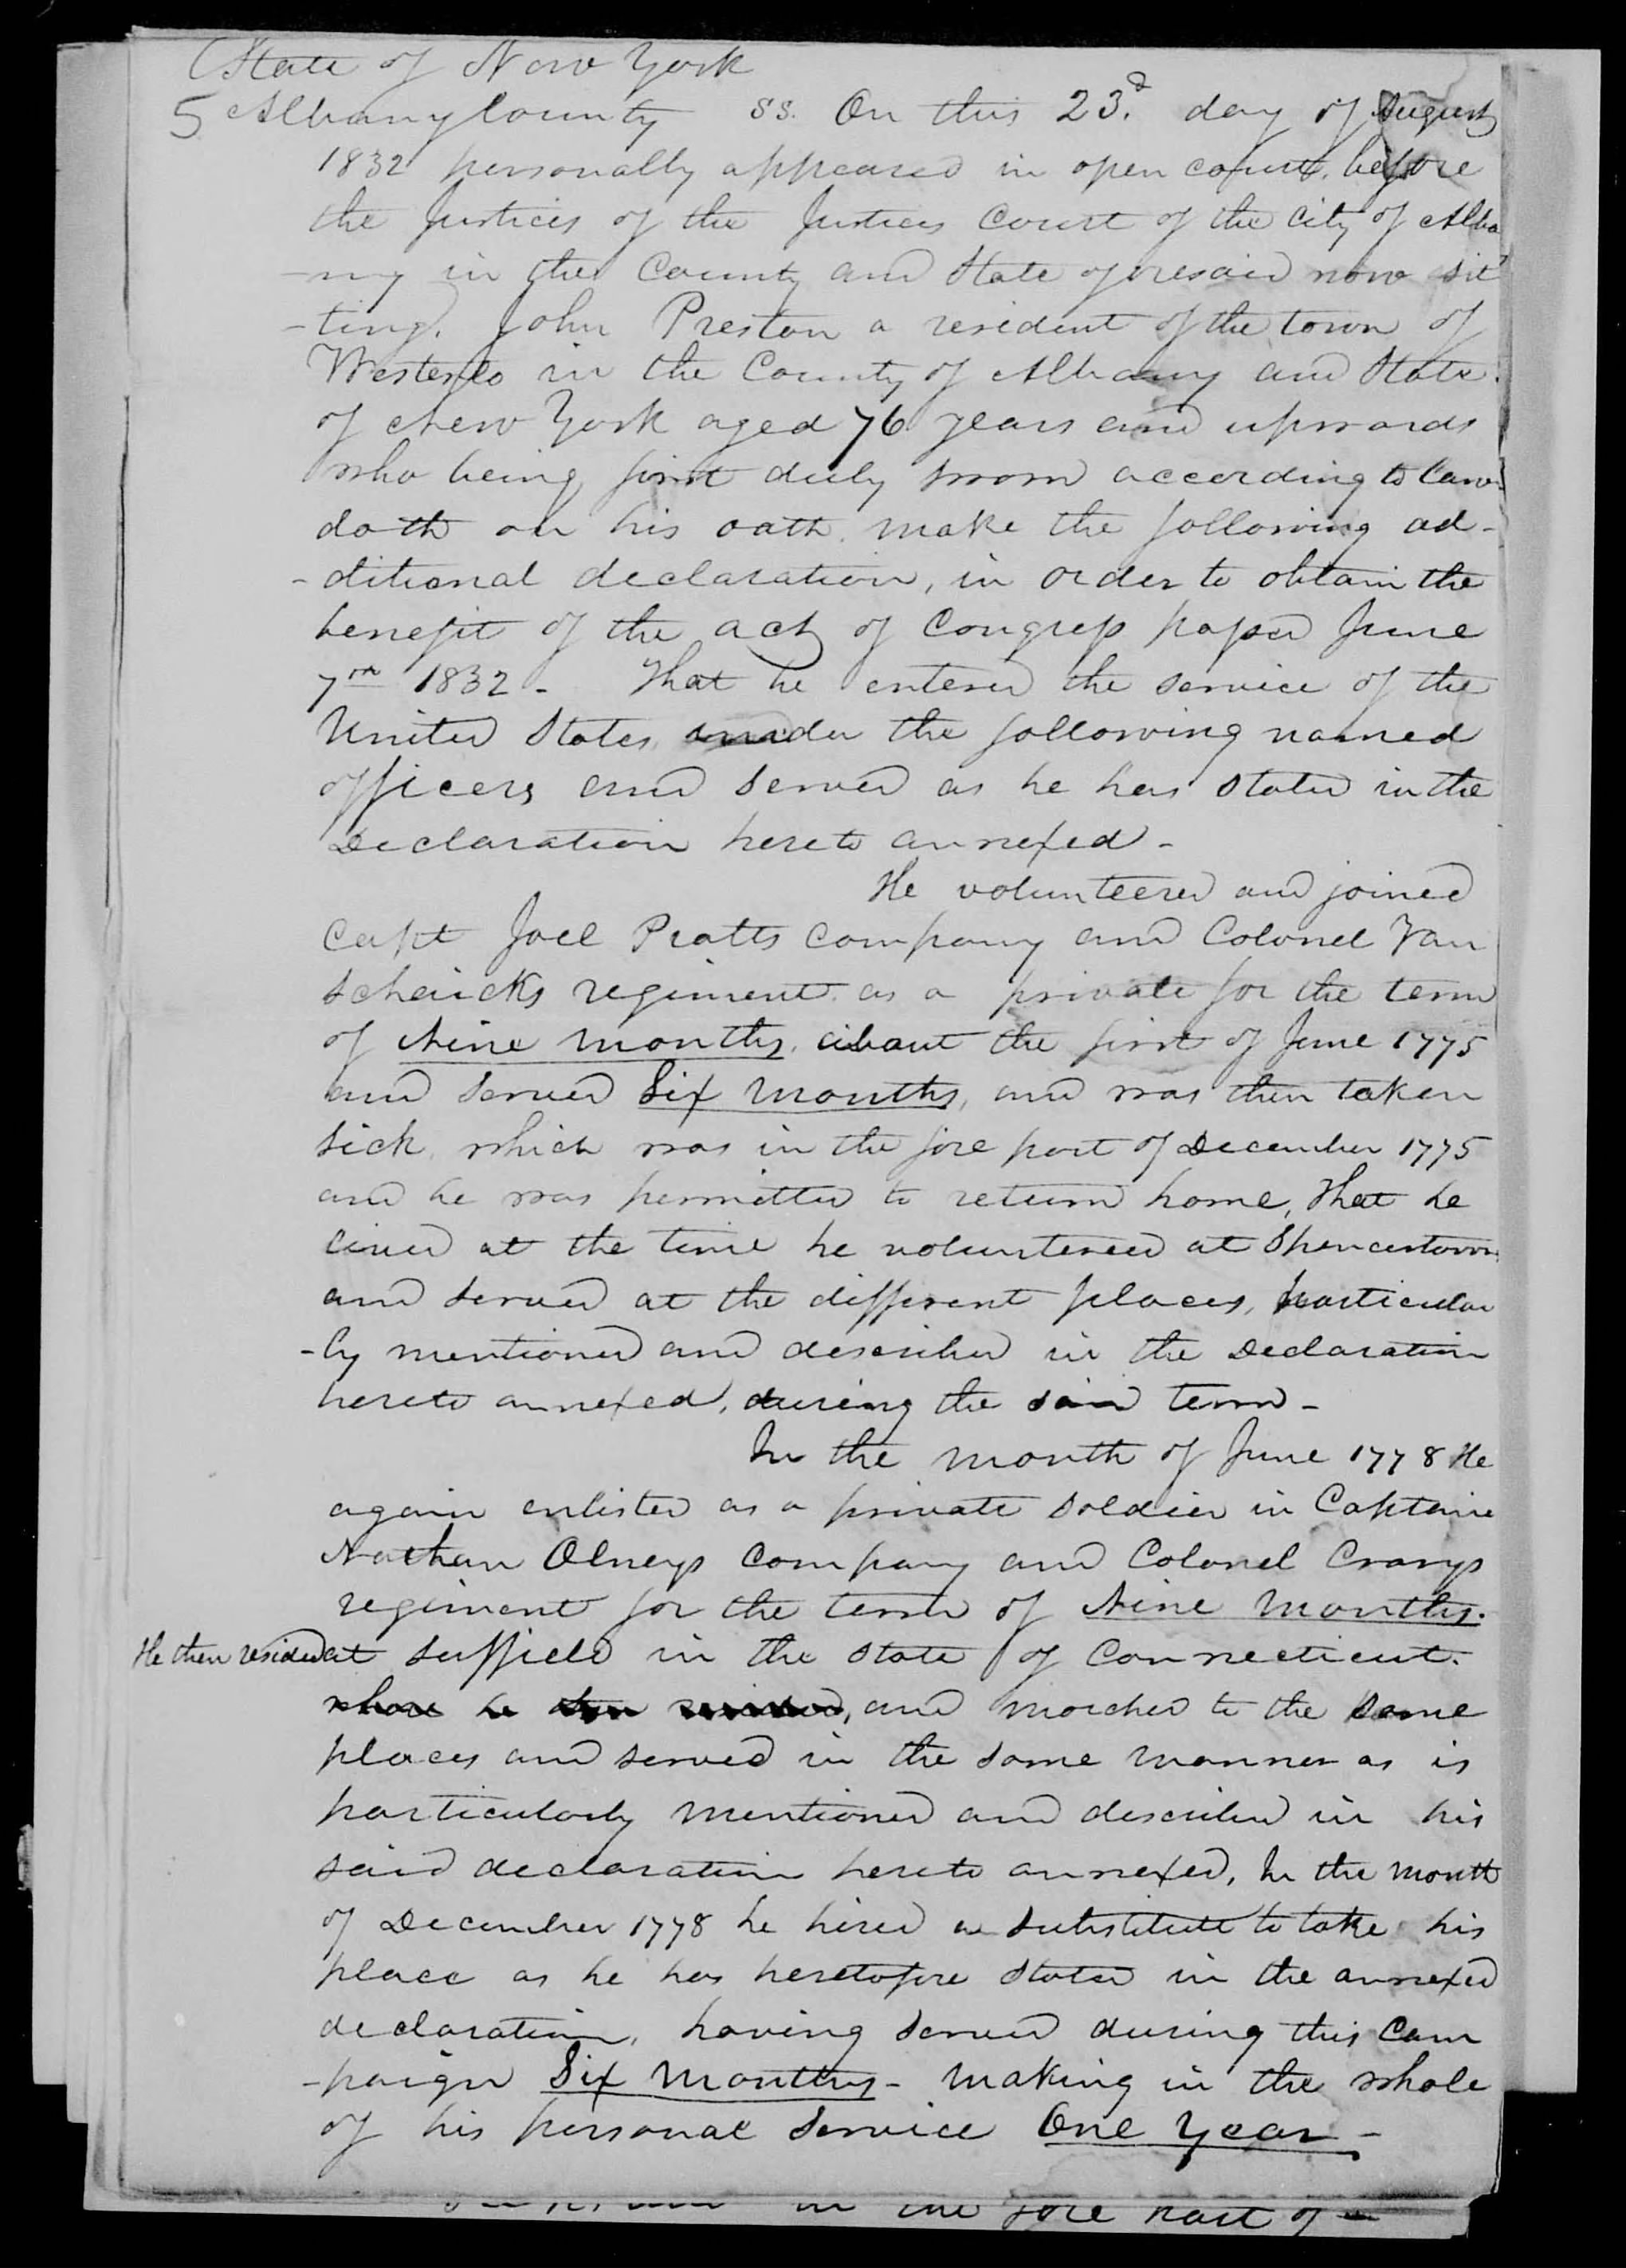 State of New York
5 Albany County ss. On this 23.d day of August
1832 personally appeared in open court, before
the Justices of the Justices Court of the City of Alba
-ny in the County and State aforesaid now sit
-ting. John Preston a resident of the town of
Westerlo in the County of Albany and State.
of New York aged 76 years and upwards
who being first duly sworn according to law
doth on his oath make the following ad-
-ditional declaration, in order to obtain the
benefit of the act of Congress passed June
7th 1832 - That he entered the service of the
United States under the following named
officers and served as he has stated in the
Declaration hereto annexed -
He volunteered and joined
Capt Joel Pratts company and Colonel Van
Schaicks regiment as a private for the term
of Nine months, about the first of June 1775
and served Six Months, and was then taken
sick, which was in the fore part of December 1775
and he was permitted to return home, That he
lived at the time he volunteered at Spencertown
and served at the different places, particular
-ly mentioned and described in the Declaration
hereto annexed, during the said term -
In the month of June 1778 He
again enlisted as a private soldier in Captain
Nathan Olneys Company and Colonel Crarys
regiment for the term of Nine Months.
He then resided at Suffield in the State of Connecticut.
where he then resided, and marched to the same
places and served in the same manner as is
particularly mentioned and described in his
said declaration hereto annexed, In the month
of December 1778 he hired a substitute to take his
place as he has heretofore stated in the annexed
declaration, having served during this Cam
-paign Six Months - making in the whole
of his personal service One Year -
in the fore part of